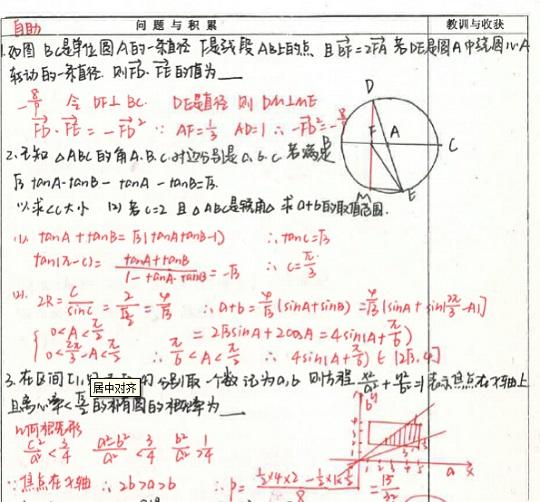 自助
问 题 与 积 累
教训与收获
1.如图 BC是单位圆A的一条直径 F是线段AB上的点 且BF=2FA 若DE是圆A中绕圆心A
转动的一条直径 则FD·FE的值为
-8/9 令 DF⊥BC. DE是直径 则 DM⊥ME
FD·FE = -FD² ∵ AF=1/3 AD=1 ∴ -FD²=-8/9
D
F
A
C
M
E
2.已知 △ABC的角A.B.C.对边分别是a.b.c 若满足
√3 tanA·tanB - tanA - tanB=√3.
(1)求∠C大小 (2)若c=2 且△ABC是锐角△ 求a+b的取值范围.
(1) tanA+tanB=√3(tanAtanB-1) ∴tanC=√3
tan(π-C)= (tanA+tanB)/(1-tanA·tanB) = -√3 ∴ C=π/3
(2). 2R=c/sinC = 2/(√3/2) = 4/√3 ∴a+b=4/√3(sinA+sinB)=4/√3[sinA+sin(2π/3-A)]
{ 0<A<π/2 = 2√3sinA+2cosA=4sin(A+π/6)
0<2π/3-A<π/2 ∴ π/6<A<π/2 ∴ 4sin(A+π/6)∈(2√3,4]
3.在区间[1,5] 分别取一个数 记为a,b 则方程 x²/a²+y²/b²=1表示焦点在x轴上
居中对齐
且离心率<√3/2的椭圆的概率为
几何概型
c²/a²<3/4 (a²-b²)/a²<3/4 b²/a²>1/4
∵焦点在x轴 ∴ 2b>a>b
a x